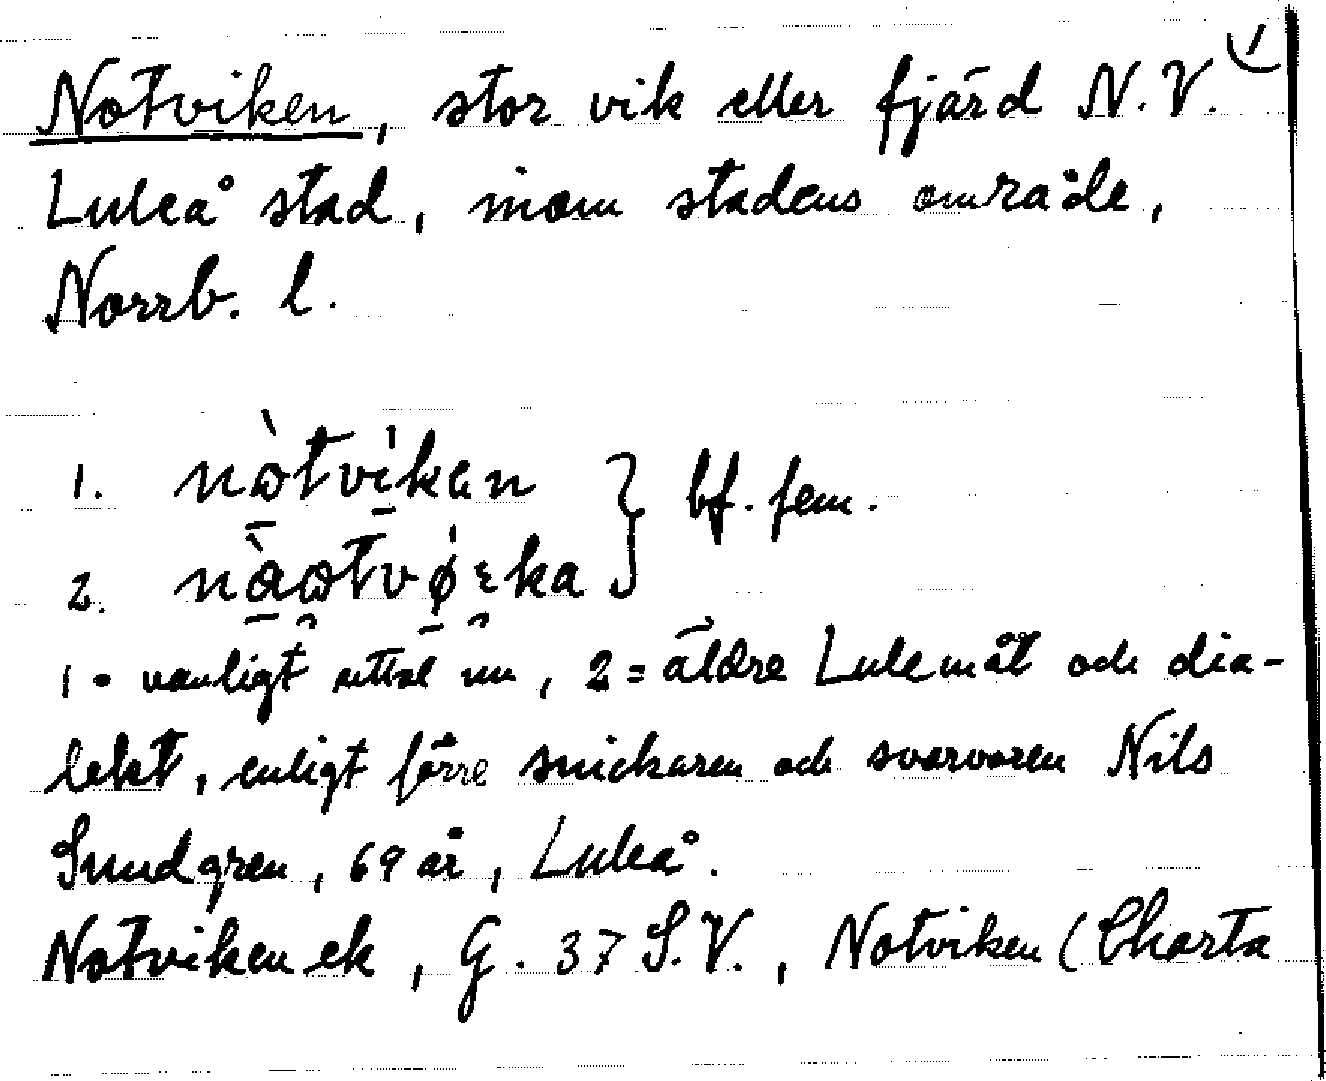 Notviken, stor vik eller fjärd N.V. 1
Luleå stad, inom stadens område,
Norrb. l.
1. nòtvíkan } bf. fem.
2. nàotvǿɛka
1 = vanligt uttal nu, 2 = äldre Lulemål och dia-
lekt, enligt förre snickaren och svarvaren Nils
Sundgren, 69 år, Luleå.
Notviken ek, G. 37 S.V., Notviken (Charta